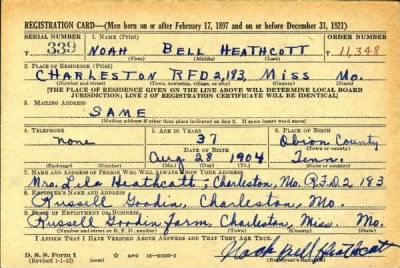 REGISTRATION CARD—(Men born on or after February 17, 1897 and on or before December 31, 1921)
SERIAL NUMBER 1. NAME ORDER NUMBER
339 NOAH BELL HEATHCOTT 11,348
(First) (Middle) (Last)
2. PLACE OF RESIDENCE (Print)
CHARLESTON RFD 2, 183, MISS MO.
(Number and street) (Town, township, village, or city) (County) (State)
[THE PLACE OF RESIDENCE GIVEN ON THE LINE ABOVE WILL DETERMINE LOCAL BOARD
JURISDICTION; LINE 2 OF REGISTRATION CERTIFICATE WILL BE IDENTICAL]
3. MAILING ADDRESS
SAME
[Mailing address if other than place indicated on line 2. If same insert word same]
4. TELEPHONE 5. AGE IN YEARS 6. PLACE OF BIRTH
none 37 Obion County
DATE OF BIRTH
Aug 28 1904 Tenn.
(Exchange) (Number) (Mo.) (Day) (Yr.) (State or country)
7. NAME AND ADDRESS OF PERSON WHO WILL ALWAYS KNOW YOUR ADDRESS
Mrs. Heathcott, Charleston, Mo. R.F.D. 2 183
8. EMPLOYER'S NAME AND ADDRESS
Russell Goodin, Charleston, Mo.
9. PLACE OF EMPLOYMENT OR BUSINESS
Russell Goodin Farm, Charleston, Miss. Mo.
(Number and street or R. F. D. number) (Town) (County) (State)
I AFFIRM THAT I HAVE VERIFIED ABOVE ANSWERS AND THAT THEY ARE TRUE.
D. S. S. Form 1
(Revised 1-1-42) (over)
Noah Bell Heathcott